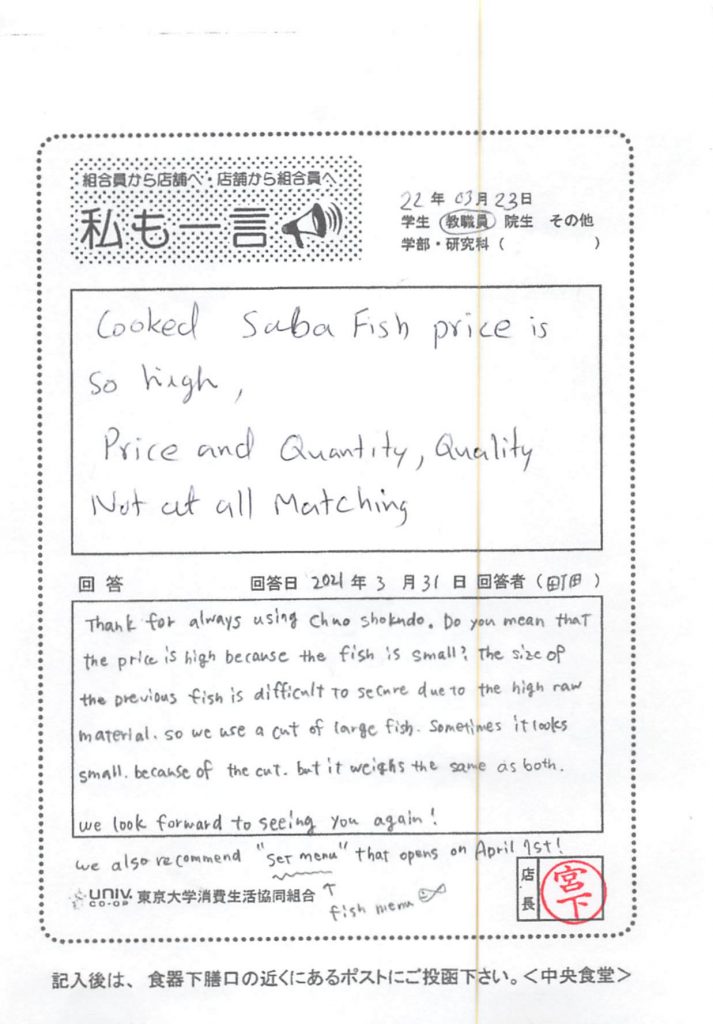 組合員から店舗へ・店舗から組合員へ
私も一言
22年 03月23日
学生 教職員 院生 その他
学部・研究科（ ）
Cooked Saba Fish price is
so high,
Price and Quantity, Quality
Not at all Matching
回答 回答日 2021年3月31日 回答者（町田）
Thank for always using Chuo shokudo. Do you mean that
the price is high because the fish is small? The size of
the previous fish is difficult to secure due to the high raw
material. so we use a cut of large fish. Sometimes it looks
small. because of the cut. but it weighs the same as both.
we look forward to seeing you again!
we also recommend "Set menu" that opens on April 1st!
UNIV. CO-OP 東京大学消費生活協同組合 ↑
fish menu
店長 宮下
記入後は、食器下膳口の近くにあるポストにご投函下さい。＜中央食堂＞